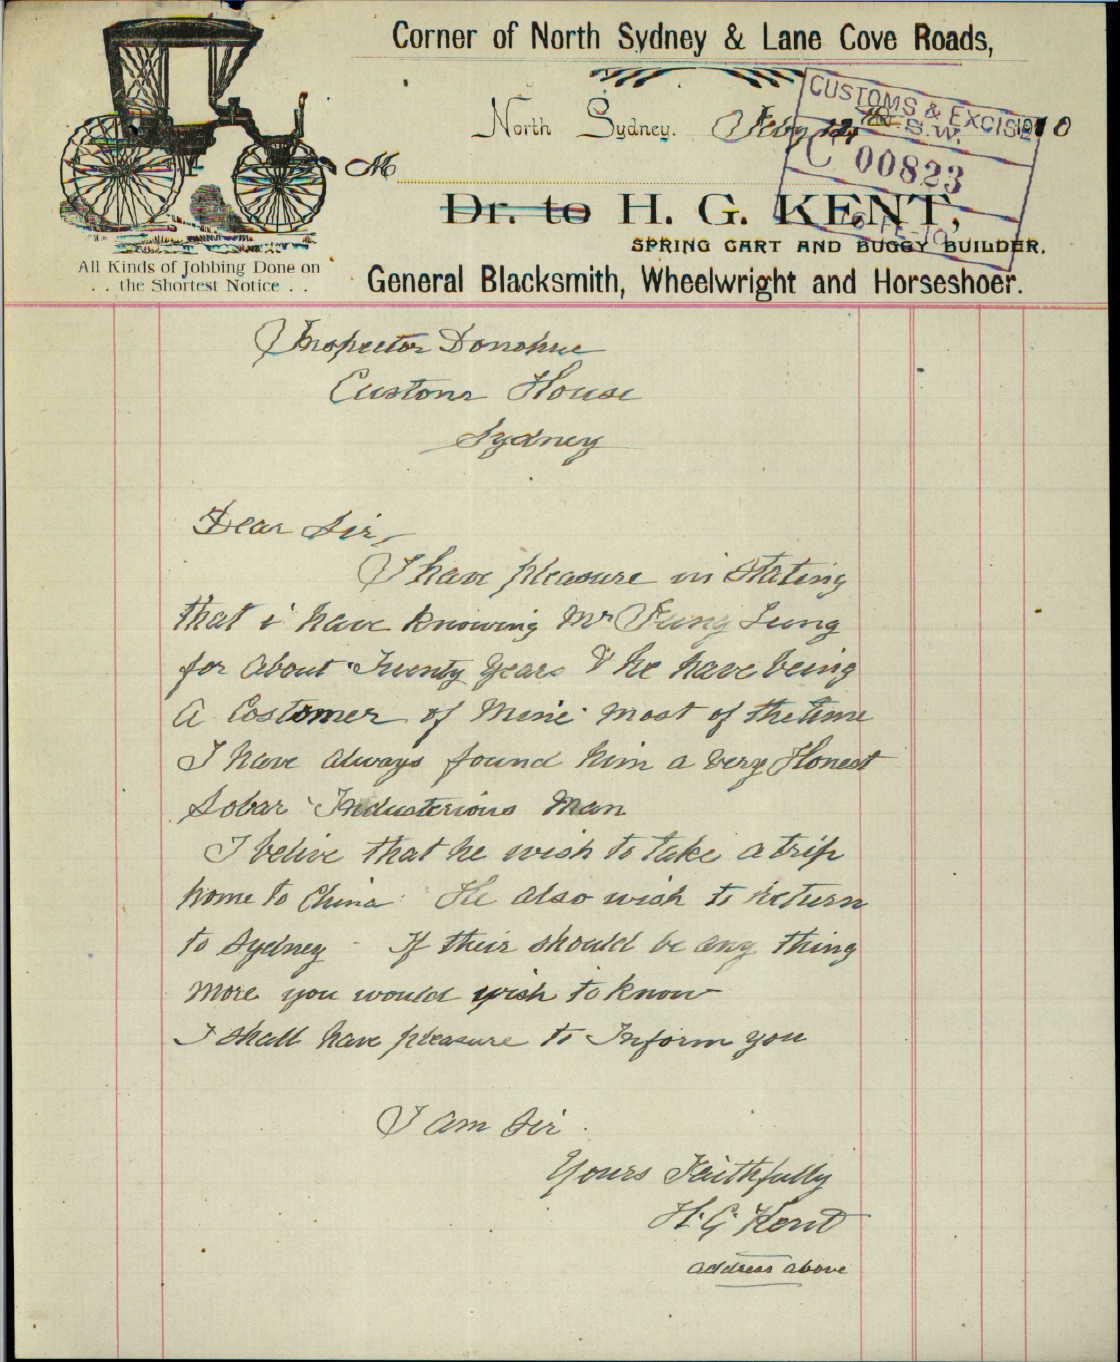 Corner of North Sydney & Lane Cove Roads,
North Sydney. 1910
CUSTOMS & EXCISE
N.S.W.
C 00823
M
Dr. to H. G. KENT,
SPRING CART AND BUGGY BUILDER.
All Kinds of Jobbing Done on
. . the Shortest Notice . .
General Blacksmith, Wheelwright and Horseshoer.
Inspector Donohue
Customs House
Sydney
Dear Sir,
I have pleasure in Stating
that i have knowing Mr Fung Lung
for About Twenty years & he have being
A Costomer of Mine most of the time
I have always found him a very Honest
Sobar Industerious Man
I belive that he wish to take a trip
home to China He also wish to return
to Sydney - If their should be any thing
more you would wish to know
I shall have pleasure to Inform you
I am Sir.
Yours Faithfully
H. G. Kent
address above